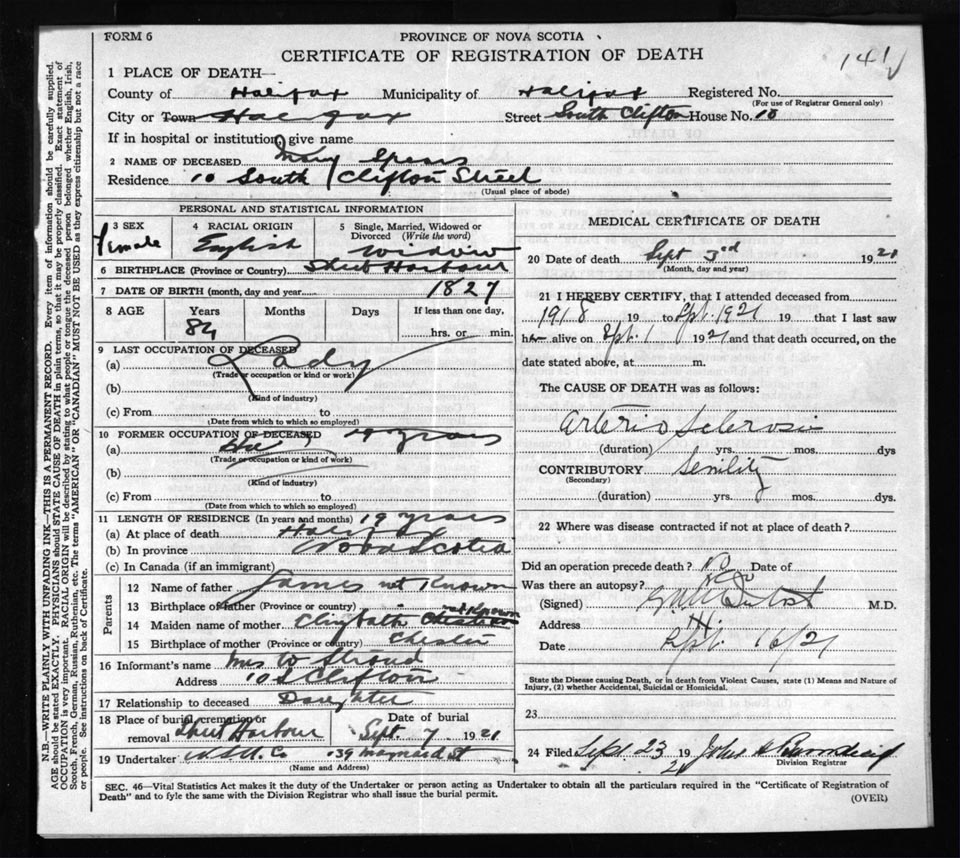 FORM 6
PROVINCE OF NOVA SCOTIA
CERTIFICATE OF REGISTRATION OF DEATH
141
1 PLACE OF DEATH—
County of Halifax Municipality of Halifax Registered No.
(For use of Registrar General only)
City or Town Halifax Street South Clifton House No. 10
If in hospital or institution, give name
2 NAME OF DECEASED Mary Spears
Residence 10 South Clifton Street
(Usual place of abode)
PERSONAL AND STATISTICAL INFORMATION
3 SEX Female
4 RACIAL ORIGIN English
5 Single, Married, Widowed or Divorced (Write the word) Widow
6 BIRTHPLACE (Province or Country) Sheet Harbour
7 DATE OF BIRTH (month, day and year) 1827
8 AGE Years 84 Months Days If less than one day, hrs. or min.
9 LAST OCCUPATION OF DECEASED
(a) Lady
(Trade or occupation or kind or work)
(b)
(Kind of industry)
(c) From to
(Date from which to which so employed)
10 FORMER OCCUPATION OF DECEASED 19 years
(a)
(Trade or occupation or kind of work)
(b)
(Kind of industry)
(c) From to
(Date from which to which so employed)
11 LENGTH OF RESIDENCE (In years and months) 19 years
(a) At place of death Halifax
(b) In province Nova Scotia
(c) In Canada (if an immigrant)
Parents
12 Name of father James not Known
13 Birthplace of father (Province or country) not Known
14 Maiden name of mother
15 Birthplace of mother (Province or country) Chester
16 Informant's name Mrs W Stroud
Address 10 S Clifton
17 Relationship to deceased Daughter
18 Place of burial, cremation or removal Sheet Harbour Date of burial Sept. 7 1921
19 Undertaker 39 Maynard St
(Name and Address)
MEDICAL CERTIFICATE OF DEATH
20 Date of death Sept 3rd 1921
(Month, day and year)
21 I HEREBY CERTIFY, that I attended deceased from
1918 19 to Spt. 1921 19 that I last saw
h alive on Spt. 1 1921 and that death occurred, on the
date stated above, at m.
The CAUSE OF DEATH was as follows:
Arterio Sclerosis
(duration) yrs. mos. dys
CONTRIBUTORY Senility
(Secondary)
(duration) yrs. mos. dys.
22 Where was disease contracted if not at place of death?
Did an operation precede death? No Date of
Was there an autopsy? No
(Signed) M.D.
Address
Date Sept. 16/21
State the Disease causing Death, or in death from Violent Causes, state (1) Means and Nature of Injury, (2) whether Accidental, Suicidal or Homicidal.
23
24 Filed Sept 23 19 21 John
Division Registrar
SEC. 46—Vital Statistics Act makes it the duty of the Undertaker or person acting as Undertaker to obtain all the particulars required in the "Certificate of Registration of
Death" and to fyle the same with the Division Registrar who shall issue the burial permit.
(OVER)
N.B.—WRITE PLAINLY WITH UNFADING INK—THIS IS A PERMANENT RECORD. Every item of information should be carefully supplied.
AGE should be stated EXACTLY. PHYSICIANS should STATE CAUSE OF DEATH in plain terms, so that it may be properly classified. Exact statement of
OCCUPATION is very important. RACIAL ORIGIN will be described by stating to what people or tongue the deceased person belonged whether English, Irish,
Scotch, French, German, Russian, Ruthenian, etc. The terms "AMERICAN" OR "CANADIAN" MUST NOT BE USED as they express citizenship but not a race
or people. See instructions on back of Certificate.